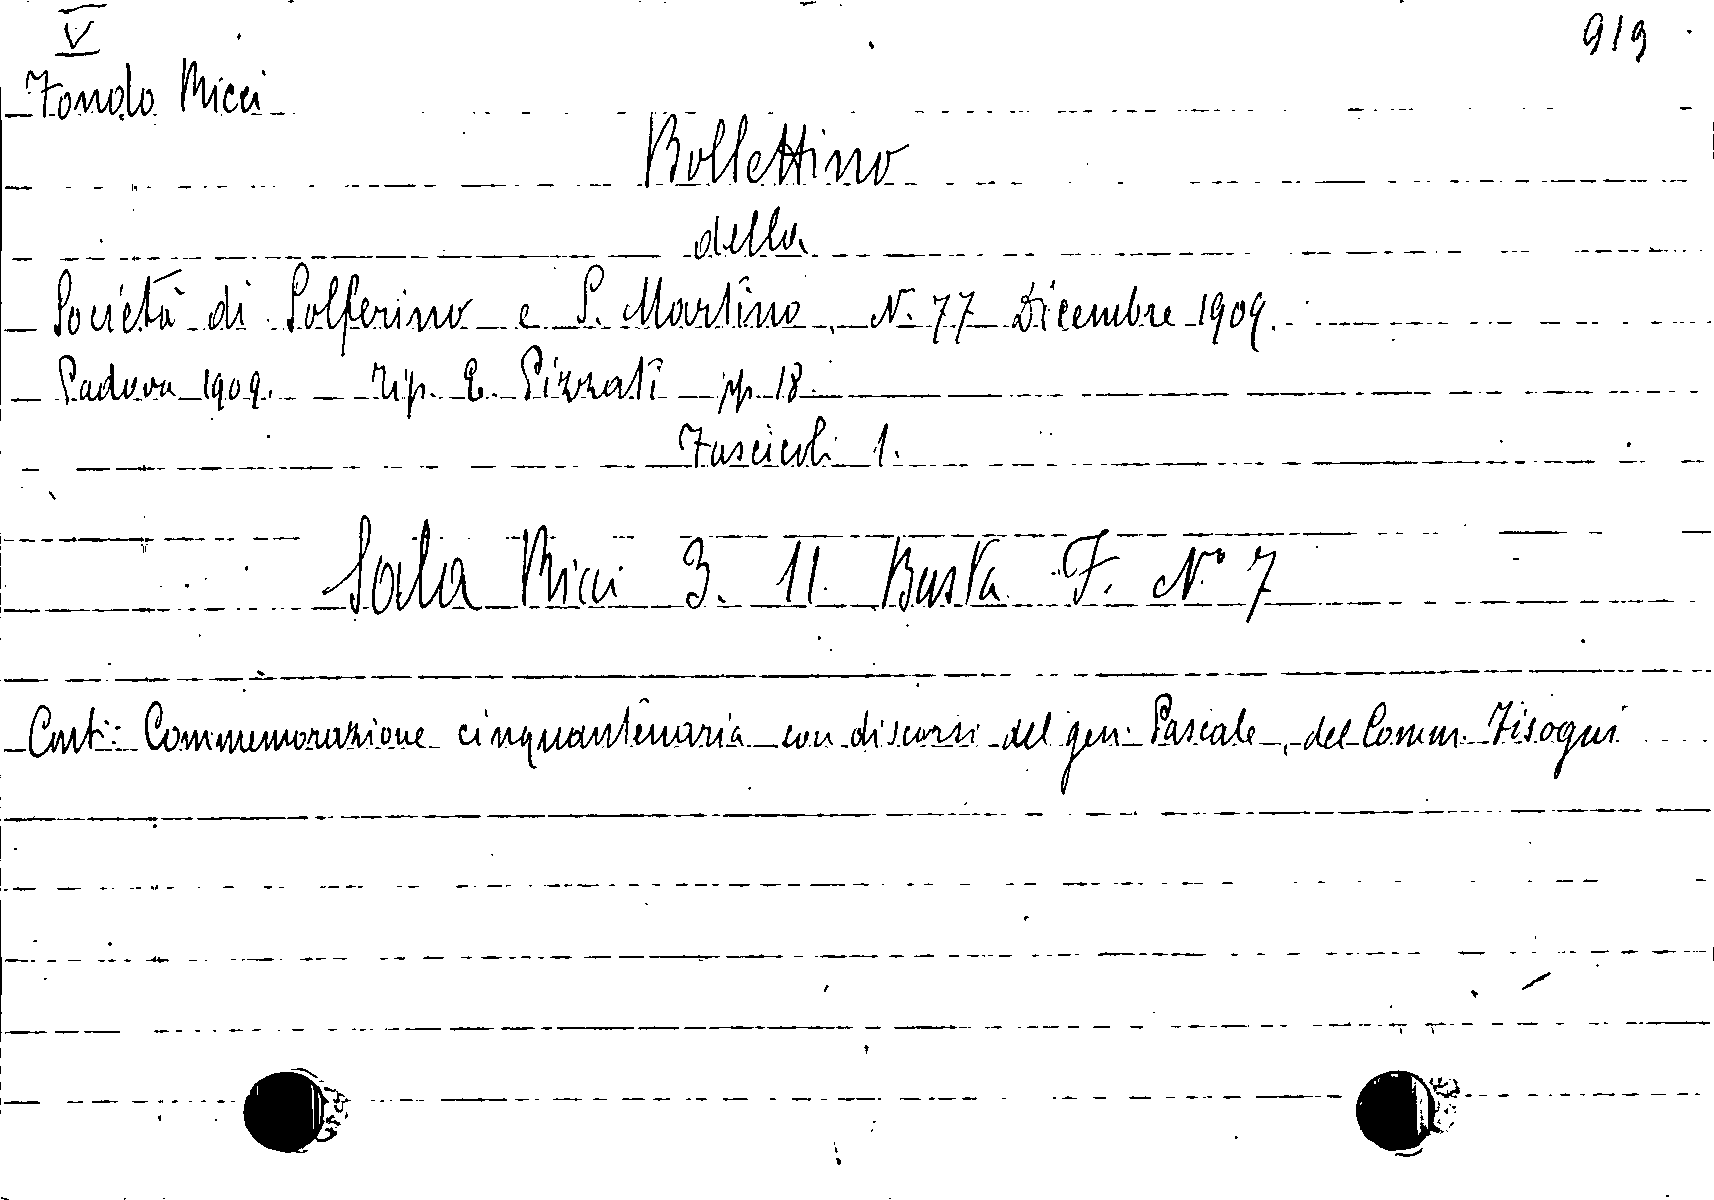 V
919
Fondo Ricci
Bollettino
della
Società di Solferino e S. Martino. N. 77 Dicembre 1909.
Padova 1909. Tip. E. Pizzati pp. 18.
Fascicoli 1.
Sala Ricci 3. 11. Busta F. N° 7
Cont: Commemorazione cinquantenaria con discorsi del gen. Pascale, del Comm.